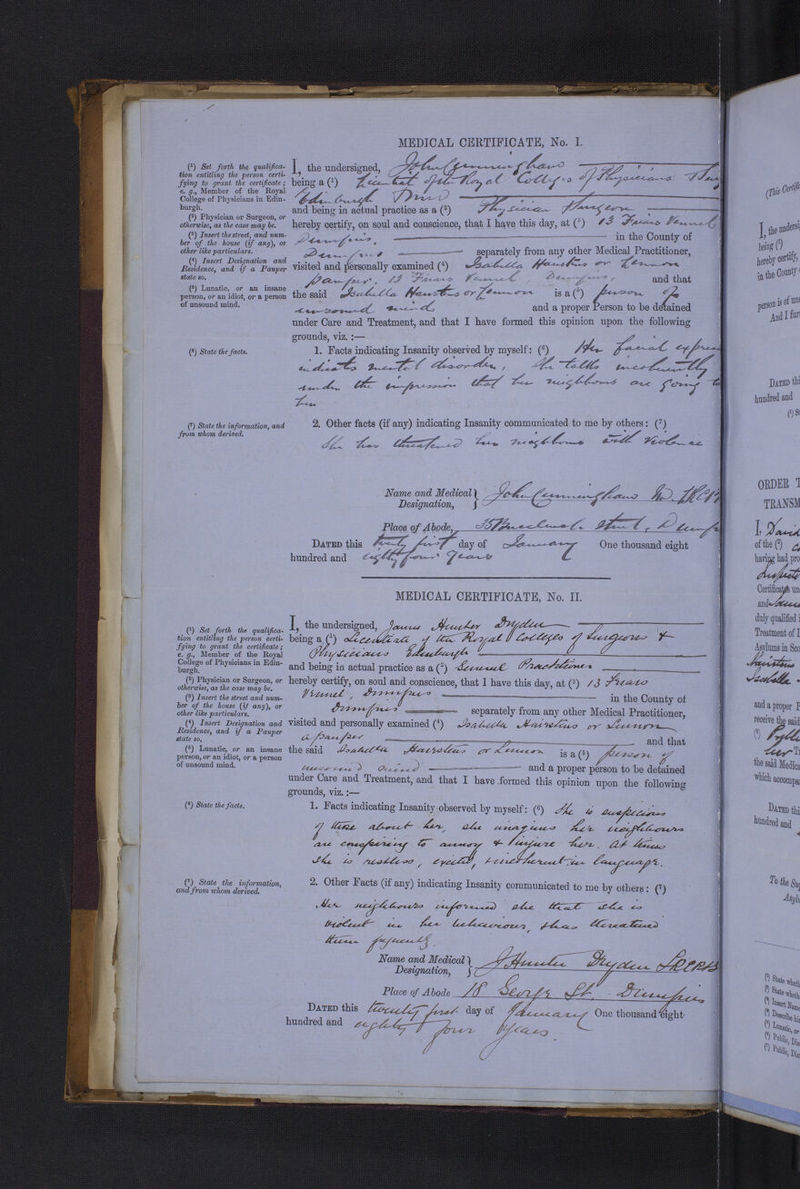 MEDICAL CERTIFICATE, No. I.
(¹) Set forth the qualifica-
tion entitling the person certi-
fying to grant the certificate;
e. g., Member of the Royal
College of Physicians in Edin-
burgh.
(²) Physician or Surgeon, or
otherwise, as the case may be.
(³) Insert the street, and num-
ber of the house (if any), or
other like particulars.
(⁴) Insert Designation and
Residence, and if a Pauper
state so.
(⁵) Lunatic, or an insane
person, or an idiot, or a person
of unsound mind.
I, the undersigned, John Cunningham
being a (¹) Licentiate of the Royal College of Physicians
Edinburgh
and being in actual practice as a (²) Physician Surgeon
hereby certify, on soul and conscience, that I have this day, at (³) 13 Friars Vennel
Dumfries. in the County of
Dumfries separately from any other Medical Practitioner,
visited and personally examined (⁴) Isabella Hairstens or Lennon
pauper, 13 Friars Vennel Dumfries, and that
the said Isabella Hairstens or Lennon is a (⁵) person of
unsound mind and a proper Person to be detained
under Care and Treatment, and that I have formed this opinion upon the following
grounds, viz. :—
(⁶) State the facts.
1. Facts indicating Insanity observed by myself: (⁶) Her facial
indicates mental disorder, she talks incoherently
under the impression that her neighbours are going
her
(⁷) State the information, and
from whom derived.
2. Other facts (if any) indicating Insanity communicated to me by others: (⁷)
She has threatened her neighbours with violence
Name and Medical
Designation, } John Cunningham M.D.
Place of Abode, Street,
DATED this twenty first day of January One thousand eight
hundred and eighty four years
MEDICAL CERTIFICATE, No. II.
(¹) Set forth the qualifica-
tion entitling the person certi-
fying to grant the certificate;
e. g., Member of the Royal
College of Physicians in Edin-
burgh.
(²) Physician or Surgeon, or
otherwise, as the case may be.
(³) Insert the street and num-
ber of the house (if any), or
other like particulars.
(⁴) Insert Designation and
Residence, and if a Pauper
state so.
(⁵) Lunatic, or an insane
person, or an idiot, or a person
of unsound mind.
I, the undersigned, James Hunter Dryden
being a (¹) Licentiate of the Royal Colleges of Surgeons &
Physicians Edinburgh
and being in actual practice as a (²) General Practitioner
hereby certify, on soul and conscience, that I have this day, at (³) 13 Friars
Vennel, Dumfries in the County of
Dumfries separately from any other Medical Practitioner,
visited and personally examined (⁴) Isabella Hairstens or Lennon
a pauper and that
the said Isabella Hairstens or Lennon is a (⁵) person of
unsound mind and a proper person to be detained
under Care and Treatment, and that I have formed this opinion upon the following
grounds, viz. :—
(⁶) State the facts.
1. Facts indicating Insanity observed by myself: (⁶) She is suspicious
of those about her, she imagines her neighbours
are conspiring to annoy & injure her. At times
she is restless, excited, & incoherent in language.
(⁷) State the information,
and from whom derived.
2. Other Facts (if any) indicating Insanity communicated to me by others: (⁷)
Her neighbours informed she that she is
violent in her behaviour, & has threatened
them frequently.
Name and Medical
Designation, } J Hunter Dryden
Place of Abode 18 George St. Dumfries
DATED this twenty first day of January One thousand eight
hundred and eighty four years.
I, the undersi
being (¹)
hereby certify,
in the County
person is of uns
And I fur
DATED thi
hundred and
ORDER T
TRANSM
I, David
of the (²)
having had pro
Certificates un
and
duly qualified i
Treatment of I
Asylums in Sco
Hairstens
Isabella
and a proper P
receive the said
the said Medica
which accompa
DATED thi
hundred and
To the Su
Asyl
(¹) State wheth
(²) State wheth
(³) Insert Nam
(⁴) Describe hi
(⁵) Lunatic, or
(⁶) Public, Dis
(⁷) Public, Dis